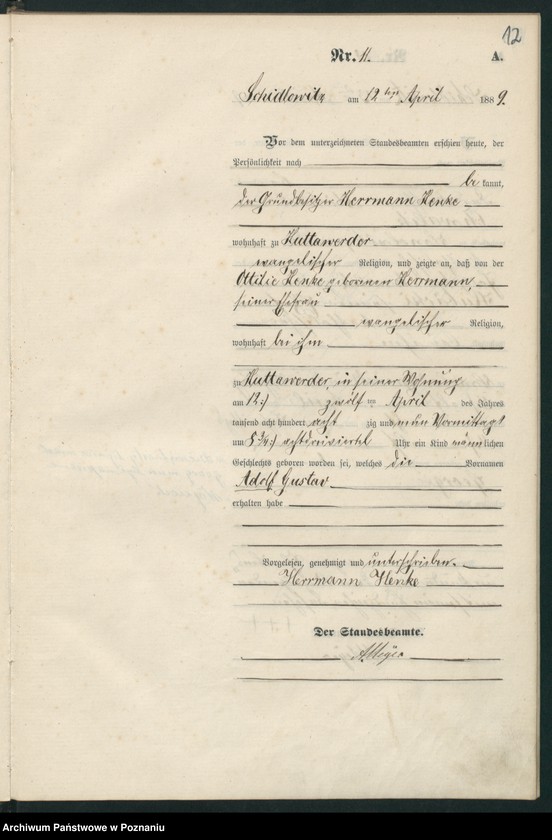 12
Nr. 11.
A.
Schidlowitz am 12ten April 1889.
Vor dem unterzeichneten Standesbeamten erschien heute, der
Persönlichkeit nach
be kannt,
der Grundbesitzer Herrmann Henke
wohnhaft zu Huttawerder
evangelischer Religion, und zeigte an, daß von der
Ottilie Henke geborenen Herrmann,
seiner Ehefrau
evangelischer Religion,
wohnhaft bei ihm
zu Huttawerder, in seiner Wohnung
am 12:) zwölf ten April des Jahres
tausend acht hundert acht zig und neun Vormittags
um 8¾:) achtdreiviertel Uhr ein Kind männlichen
Geschlechts geboren worden sei, welches die Vornamen
Adolf Gustav
erhalten habe
Vorgelesen, genehmigt und unterschrieben.
Herrmann Henke
Der Standesbeamte.
Archiwum Państwowe w Poznaniu